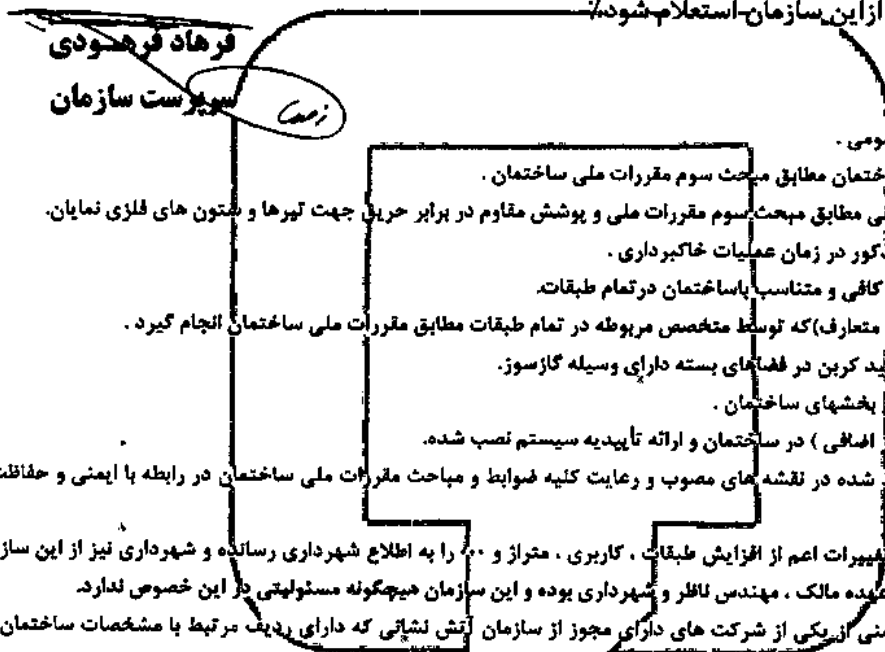 ازاین سازمان استعلام شود٪
فرهاد فرهمودی
سرپرست سازمان
ومی .
ختمان مطابق مبحث سوم مقررات ملی ساختمان .
ی مطابق مبحث سوم مقررات ملی و پوشش مقاوم در برابر حریق جهت تیرها و ستون های فلزی نمایان.
کور در زمان عملیات خاکبرداری .
کافی و متناسب باساختمان درتمام طبقات.
متعارف)که توسط متخصص مربوطه در تمام طبقات مطابق مقررات ملی ساختمان انجام گیرد .
ید کربن در فضاهای بسته دارای وسیله گازسوز.
بخشهای ساختمان .
اضافی ) در ساختمان و ارائه تأییدیه سیستم نصب شده.
شده در نقشه های مصوب و رعایت کلیه ضوابط و مباحث مقررات ملی ساختمان در رابطه با ایمنی و حفاظت
تغییرات اعم از افزایش طبقات ، کاربری ، متراژ و ... را به اطلاع شهرداری رسانده و شهرداری نیز از این ساز
عهده مالک ، مهندس ناظر و شهرداری بوده و این سازمان هیچگونه مسئولیتی در این خصوص ندارد.
منی از یکی از شرکت های دارای مجوز از سازمان آتش نشانی که دارای ردیف مرتبط با مشخصات ساختمان